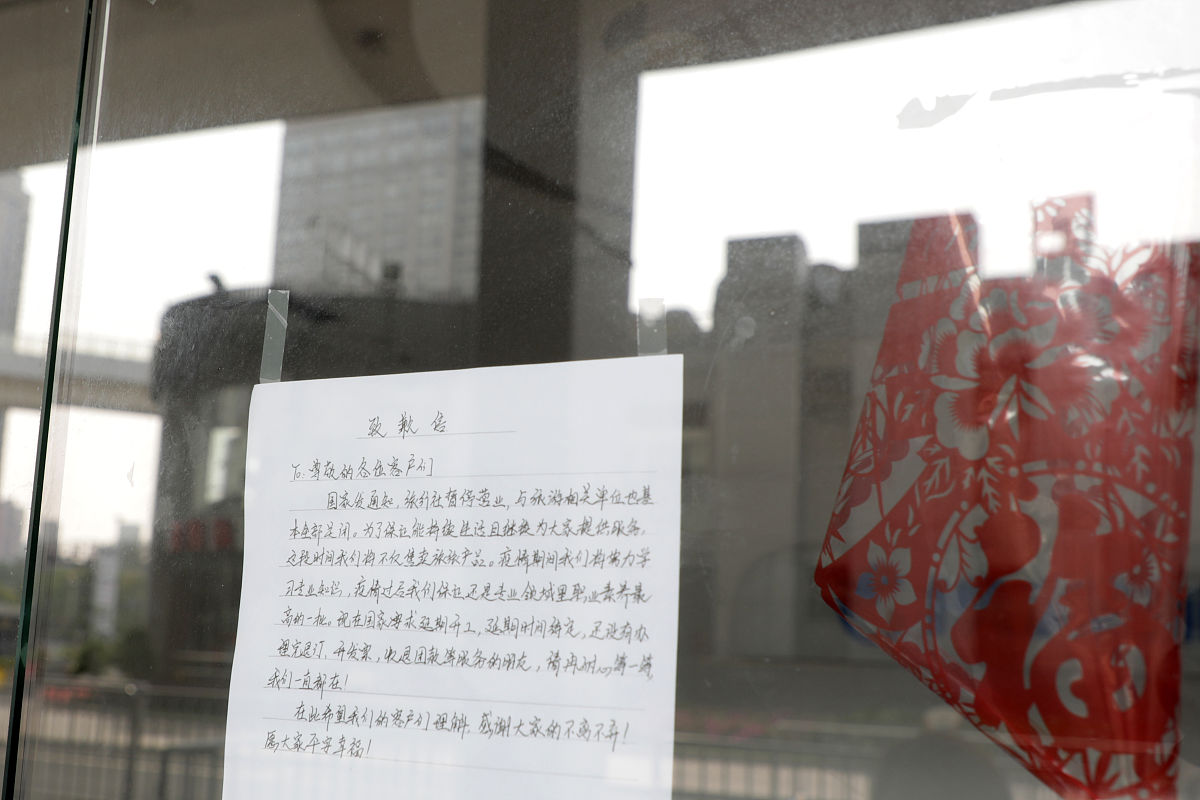 致歉信
To:尊敬的各位客户们
国家发通知,旅行社暂停营业,与旅游相关单位也基
本全部关闭。为了保证能持续生活且继续为大家提供服务,
这段时间我们将不仅售卖旅游产品。疫情期间我们将努力学
习专业知识,疫情过后我们保证还是专业领域里职业素养最
高的一批。现在国家要求延期开工,延期时间待定,还没有办
理完退订,开发票,收退团款等服务的朋友,请再耐心等一等,
我们一直都在!
在此希望我们的客户们理解,感谢大家的不离不弃!
愿大家平安幸福!